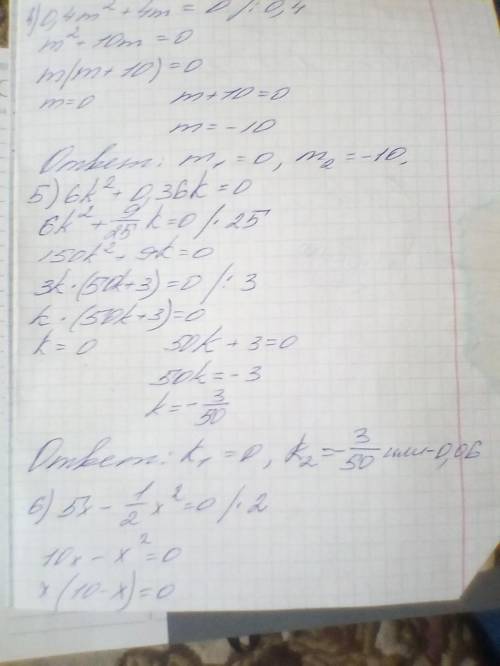 4) 0,4m² + 4m = 0 /: 0,4
m² + 10m = 0
m(m + 10) = 0
m = 0 m + 10 = 0
m = -10
Ответ: m₁ = 0, m₂ = -10,
5) 6k² + 0,36k = 0
6k² + 9/25 k = 0 /· 25
150k² + 9k = 0
3k · (50k + 3) = 0 /: 3
k · (50k + 3) = 0
k = 0 50k + 3 = 0
50k = -3
k = -3/50
Ответ: k₁ = 0, k₂ = -3/50 или -0,06
6) 5x - 1/2 x² = 0 /· 2
10x - x² = 0
x(10 - x) = 0